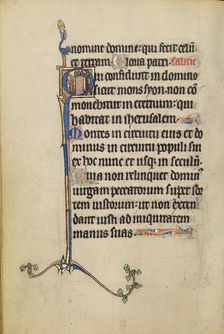 nomine domini: qui fecit celũ
et terram. Gloria patri.
Qui confidunt in domino
sicut mons syon: non cõ
mouebitur in eternum: qui
habitat in iherusalem.
Montes in circuitu eius et do
minus in circuitu populi sui
ex hoc nunc et usqȝ in seculũ.
Quia non relinquet dominus
uirgam peccatorum super sor
tem iustorum: ut non exten
dant iusti ad iniquitatem
manus suas.